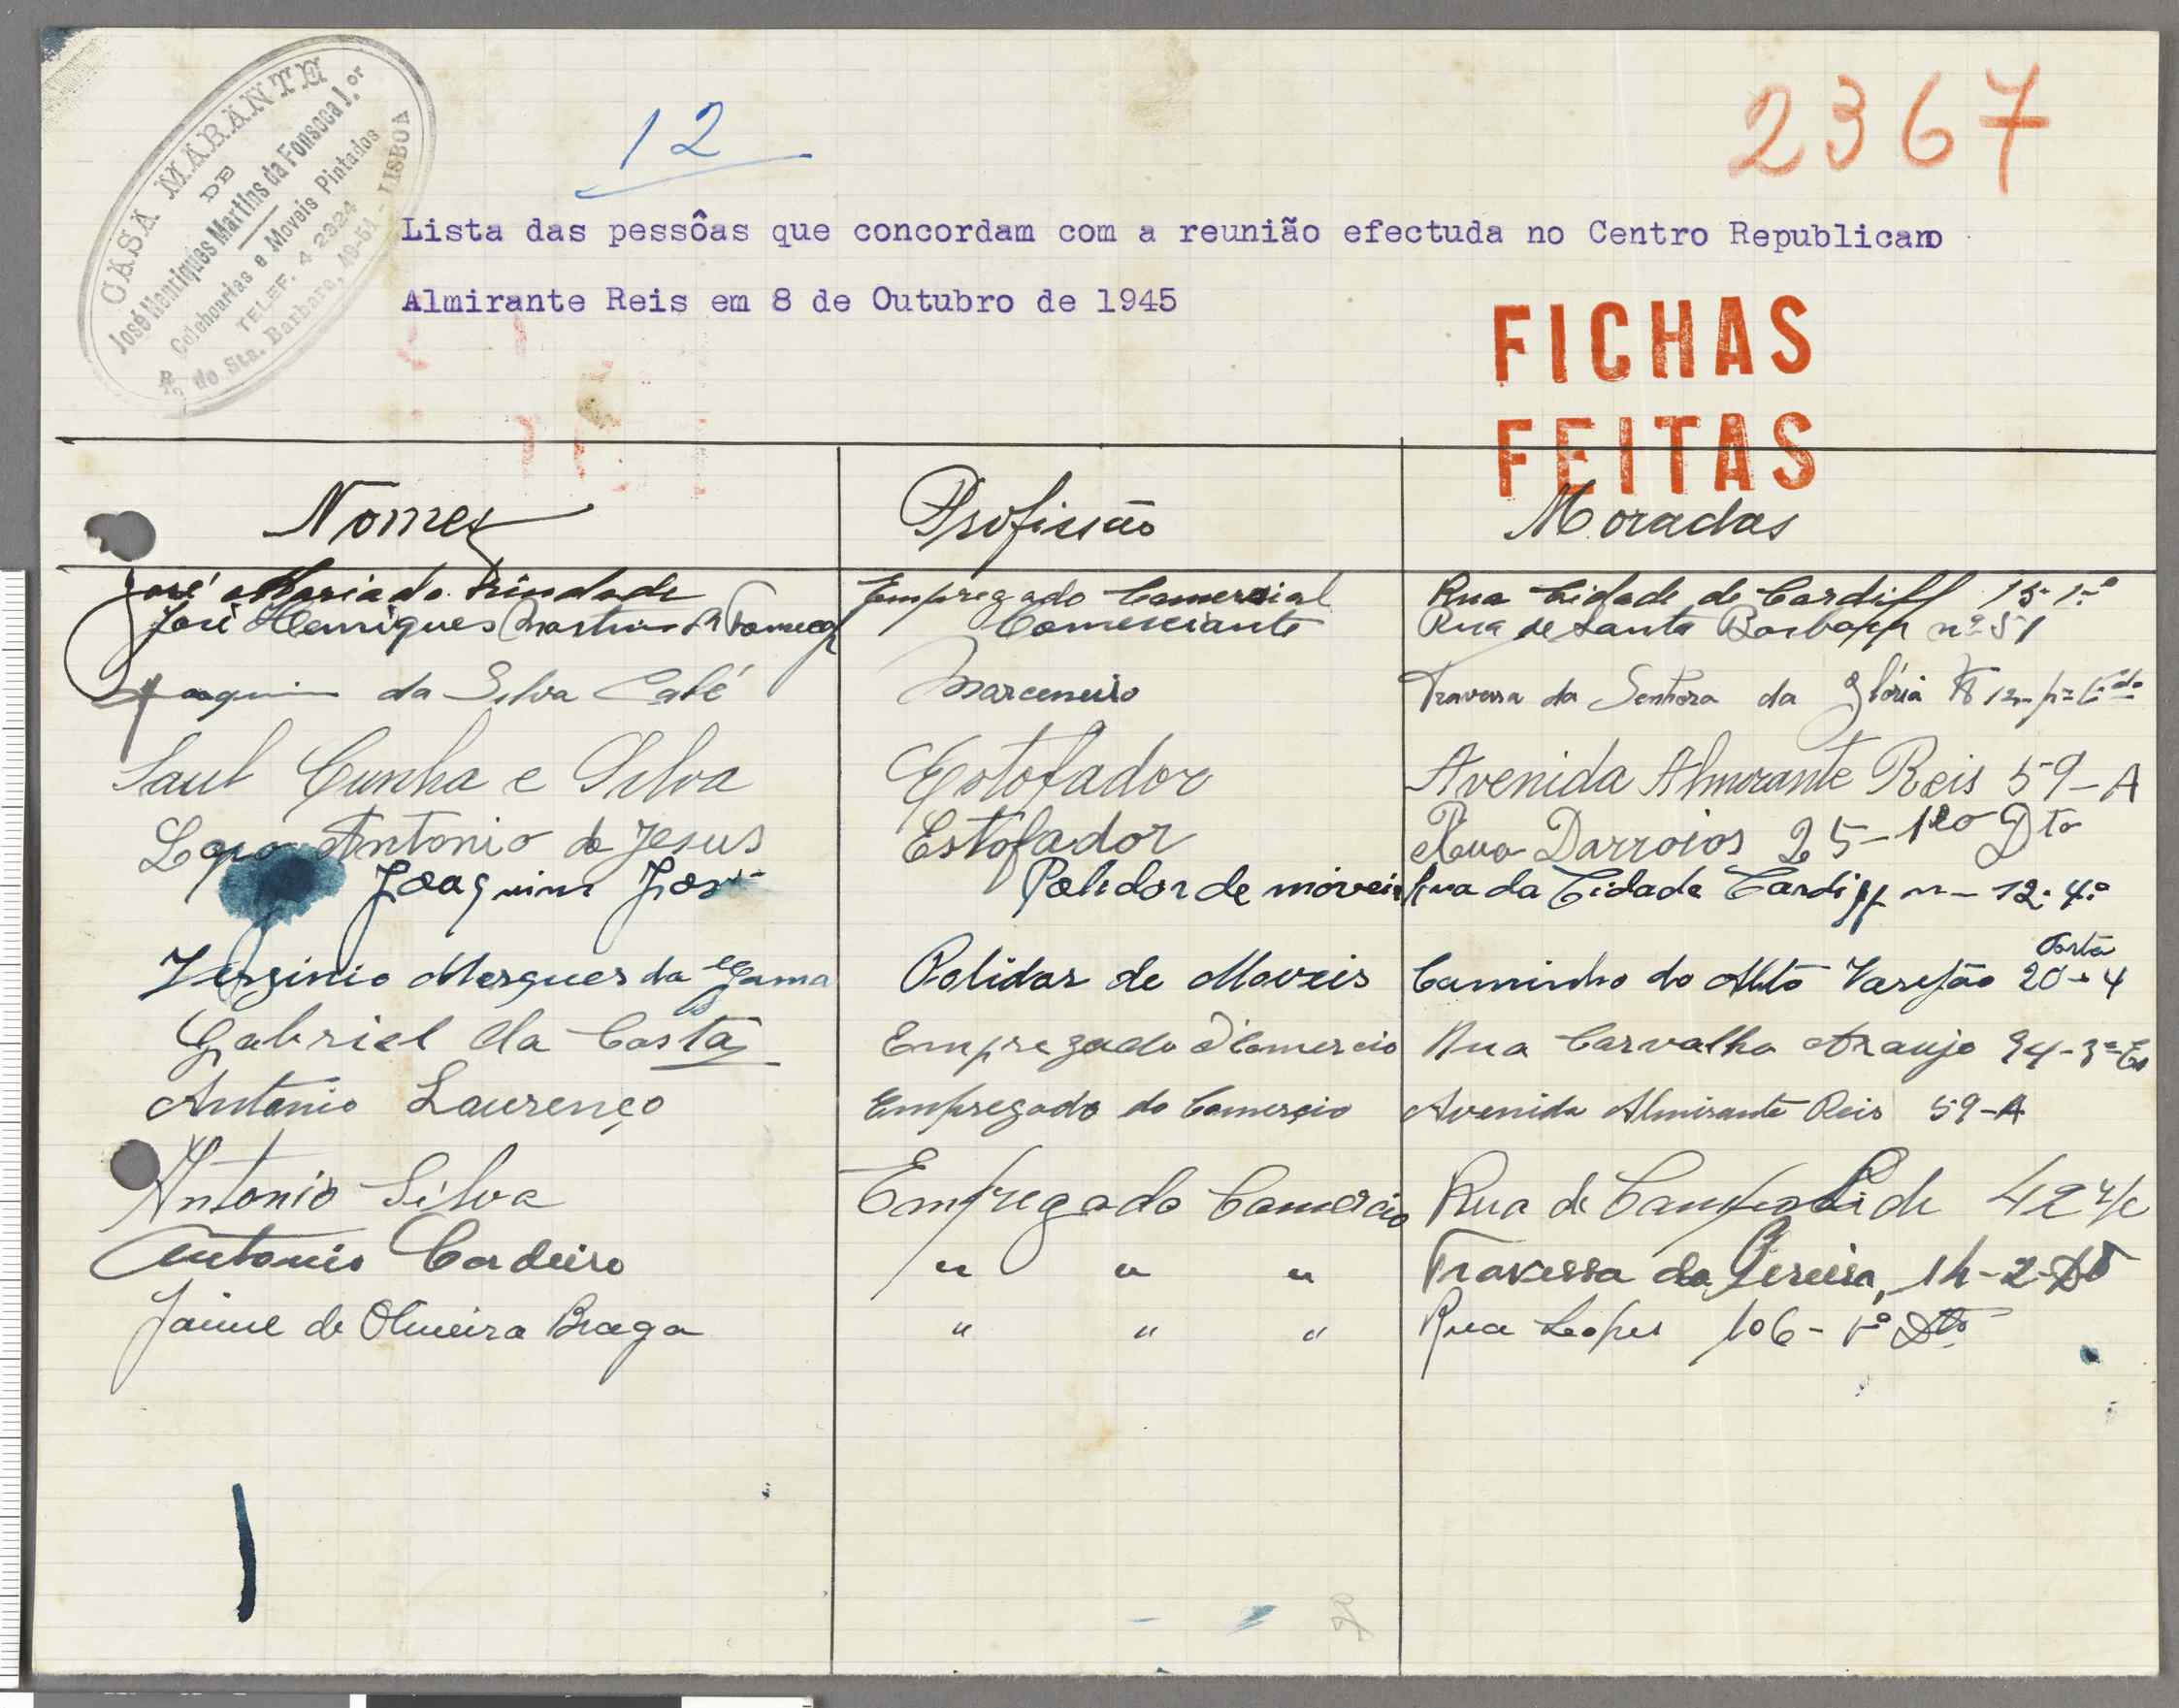 CASA MARANTE
DE
José Henriques Martins da Fonseca J.or
Colchoarias e Moveis Pintados
TELEF. 4 2324
R. de Sta. Barbara, 49-51 - LISBOA
12
2367
Lista das pessôas que concordam com a reunião efectuda no Centro Republicano
Almirante Reis em 8 de Outubro de 1945
FICHAS
FEITAS
Nomes Profissão Moradas
José Maria da Trindade Empregado Comercial Rua Cidade de Cardiff 15-1.º
José Henriques Martins da Fonseca Comerciante Rua de Santa Barbara nº 51
Joaquim da Silva Marceneiro Travessa da Senhora da Glória
Saul Cunha e Silva Estofador Avenida Almirante Reis 59-A
Antonio de Jesus Estofador Rua Darroios 25-1ro Dto
Joaquim José Polidor de móveis Rua da Cidade Cardiff n- 12-4.º
Verginio Marques da Gama Polidor de Moveis Caminho do Alto Varejão 20-4
Porta
Gabriel da Costa Empregado d'Comercio Rua Carvalho Araujo 94-3º-Es
Antonio Lourenço Empregado do Comercio Avenida Almirante Reis 59-A
Antonio Silva Empregado Comercio Rua de Campolide 42 r/c
Antonio Cordeiro " " " Travessa da Pereira, 14-2-Dt
Jaime de Oliveira Braga " " " Rua Lopes 106-1º Dto